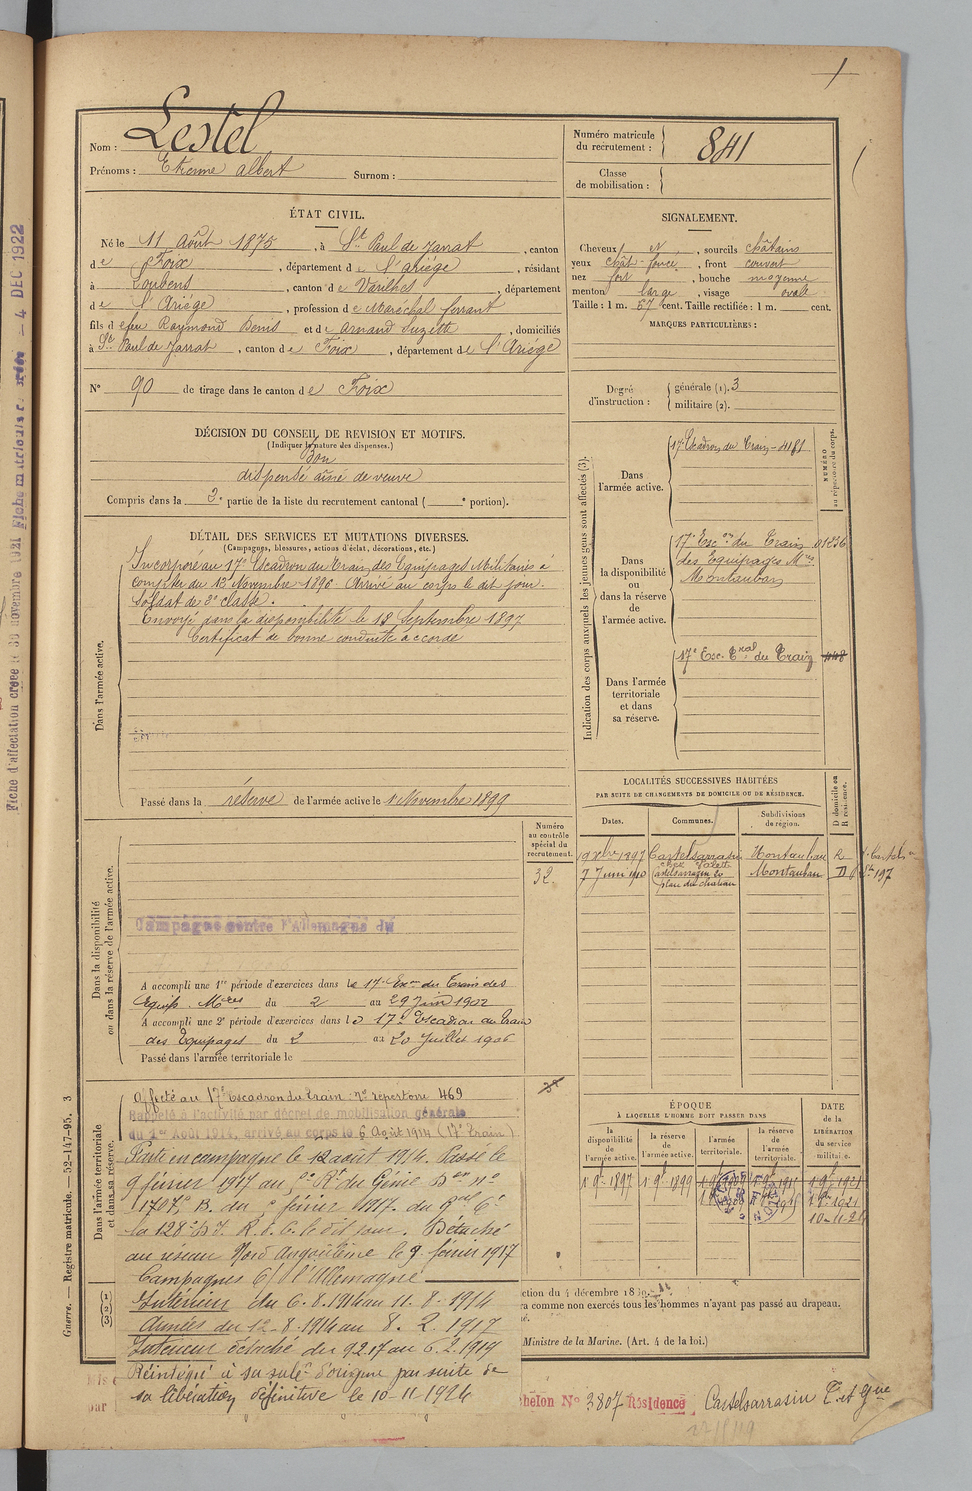 Fiche d'affectation créée le 30 novembre 1921 Fiche matricule — 4 DEC 1922
1
Nom : Lestel
Prénoms : Etienne Albert Surnom :
Numéro matricule du recrutement : 841
Classe de mobilisation :
ÉTAT CIVIL.
Né le 11 Août 1875, à St Paul de Jarrat, canton
de Foix, département de l'Ariége, résidant
à Loubens, canton de Varilhes, département
de l'Ariége, profession de Maréchal ferrant
fils de feu Raymond Denis et de Arnaud Suzette, domiciliés
à St Paul de Jarrat, canton de Foix, département de l'Ariége
N° 90 de tirage dans le canton de Foix
SIGNALEMENT.
Cheveux et, sourcils châtains
yeux chât-foncé, front couvert
nez fort, bouche moyenne
menton large, visage ovale
Taille : 1 m. 67 cent. Taille rectifiée : 1 m. cent.
MARQUES PARTICULIÈRES :
Degré d'instruction : générale (1). 3
militaire (2).
DÉCISION DU CONSEIL DE REVISION ET MOTIFS.
(Indiquer la nature des dispenses.)
Bon
dispensé aîné de veuve
Compris dans la 2e partie de la liste du recrutement cantonal ( e portion).
DÉTAIL DES SERVICES ET MUTATIONS DIVERSES.
(Campagnes, blessures, actions d'éclat, décorations, etc.)
Dans l'armée active.
Incorporé au 17e Escadron du Train des Equipages Militaires à
compter du 13 Novembre 1896. Arrivé au corps le dit jour.
Soldat de 2e classe.
Envoyé dans la disponibilité le 18 Septembre 1897
Certificat de bonne conduite accordé
Passé dans la réserve de l'armée active le 1er Novembre 1899
Indication des corps auxquels les jeunes gens sont affectés (3).
NUMÉRO au répertoire du corps.
Dans l'armée active.
17e Escadron du Train - 4181
Dans la disponibilité ou dans la réserve de l'armée active.
17e Escon du Train 01236
des Equipages Mres
Montauban
Dans l'armée territoriale et dans sa réserve.
17e Esc. Tral du Train 448
LOCALITÉS SUCCESSIVES HABITÉES
PAR SUITE DE CHANGEMENTS DE DOMICILE OU DE RÉSIDENCE.
Dates. Communes. Subdivisions de région. D domicile ou R résidence.
19 Xbre 1897 Castelsarrasin Montauban R
7 Juin 1910 Castelsarrasin 20 Montauban D
place du château
Dans la disponibilité ou dans la réserve de l'armée active.
Numéro au contrôle spécial du recrutement.
32
Campagne contre l'Allemagne du
A accompli une 1re période d'exercices dans le 17e Escon du Train des
Equip. Mres du 2 au 29 Juin 1902
A accompli une 2e période d'exercices dans le 17e Escadron du Train
des Equipages du 2 au 20 Juillet 1906
Passé dans l'armée territoriale le
Dans l'armée territoriale et dans sa réserve.
Affecté au 17e Escadron du Train : No répertoire 469
Rappelé à l'activité par décret de mobilisation générale
du 1er Août 1914, arrivé au corps le 6 Août 1914 (17e Train)
Parti en campagne le 12 août 1914. Passé le
9 février 1917 au Rt du Génie Don no
1707 B. du février 1917. du Gal Ct
la 128e R. à C. le dit jour. Détaché
au réseau Nord Angoulême le 9 février 1917
Campagnes C/ l'Allemagne
Intérieur du 6.8.1914 au 11.8.1914
Armées du 12-8-1914 au 8.2.1917
Intérieur détaché du 9.2.17 au 6.2.1919
Réintégré à sa subd d'origine par suite de
sa libération définitive le 10-11-1924
ÉPOQUE
À LAQUELLE L'HOMME DOIT PASSER DANS
la disponibilité de l'armée active. la réserve de l'armée active. l'armée territoriale. la réserve de l'armée territoriale.
DATE DE LA LIBÉRATION du service militaire.
1er 9bre 1897 1er 9bre 1899
10-11-24
ction du 4 décembre 18
ra comme non exercés tous les hommes n'ayant pas passé au drapeau.
Ministre de la Marine. (Art. 4 de la loi.)
Guerre. — Registre matricule. — 52-147-95. 3
(1) (2) (3)
par
helon No 3807 Résidence Castelsarrasin T. et Gne